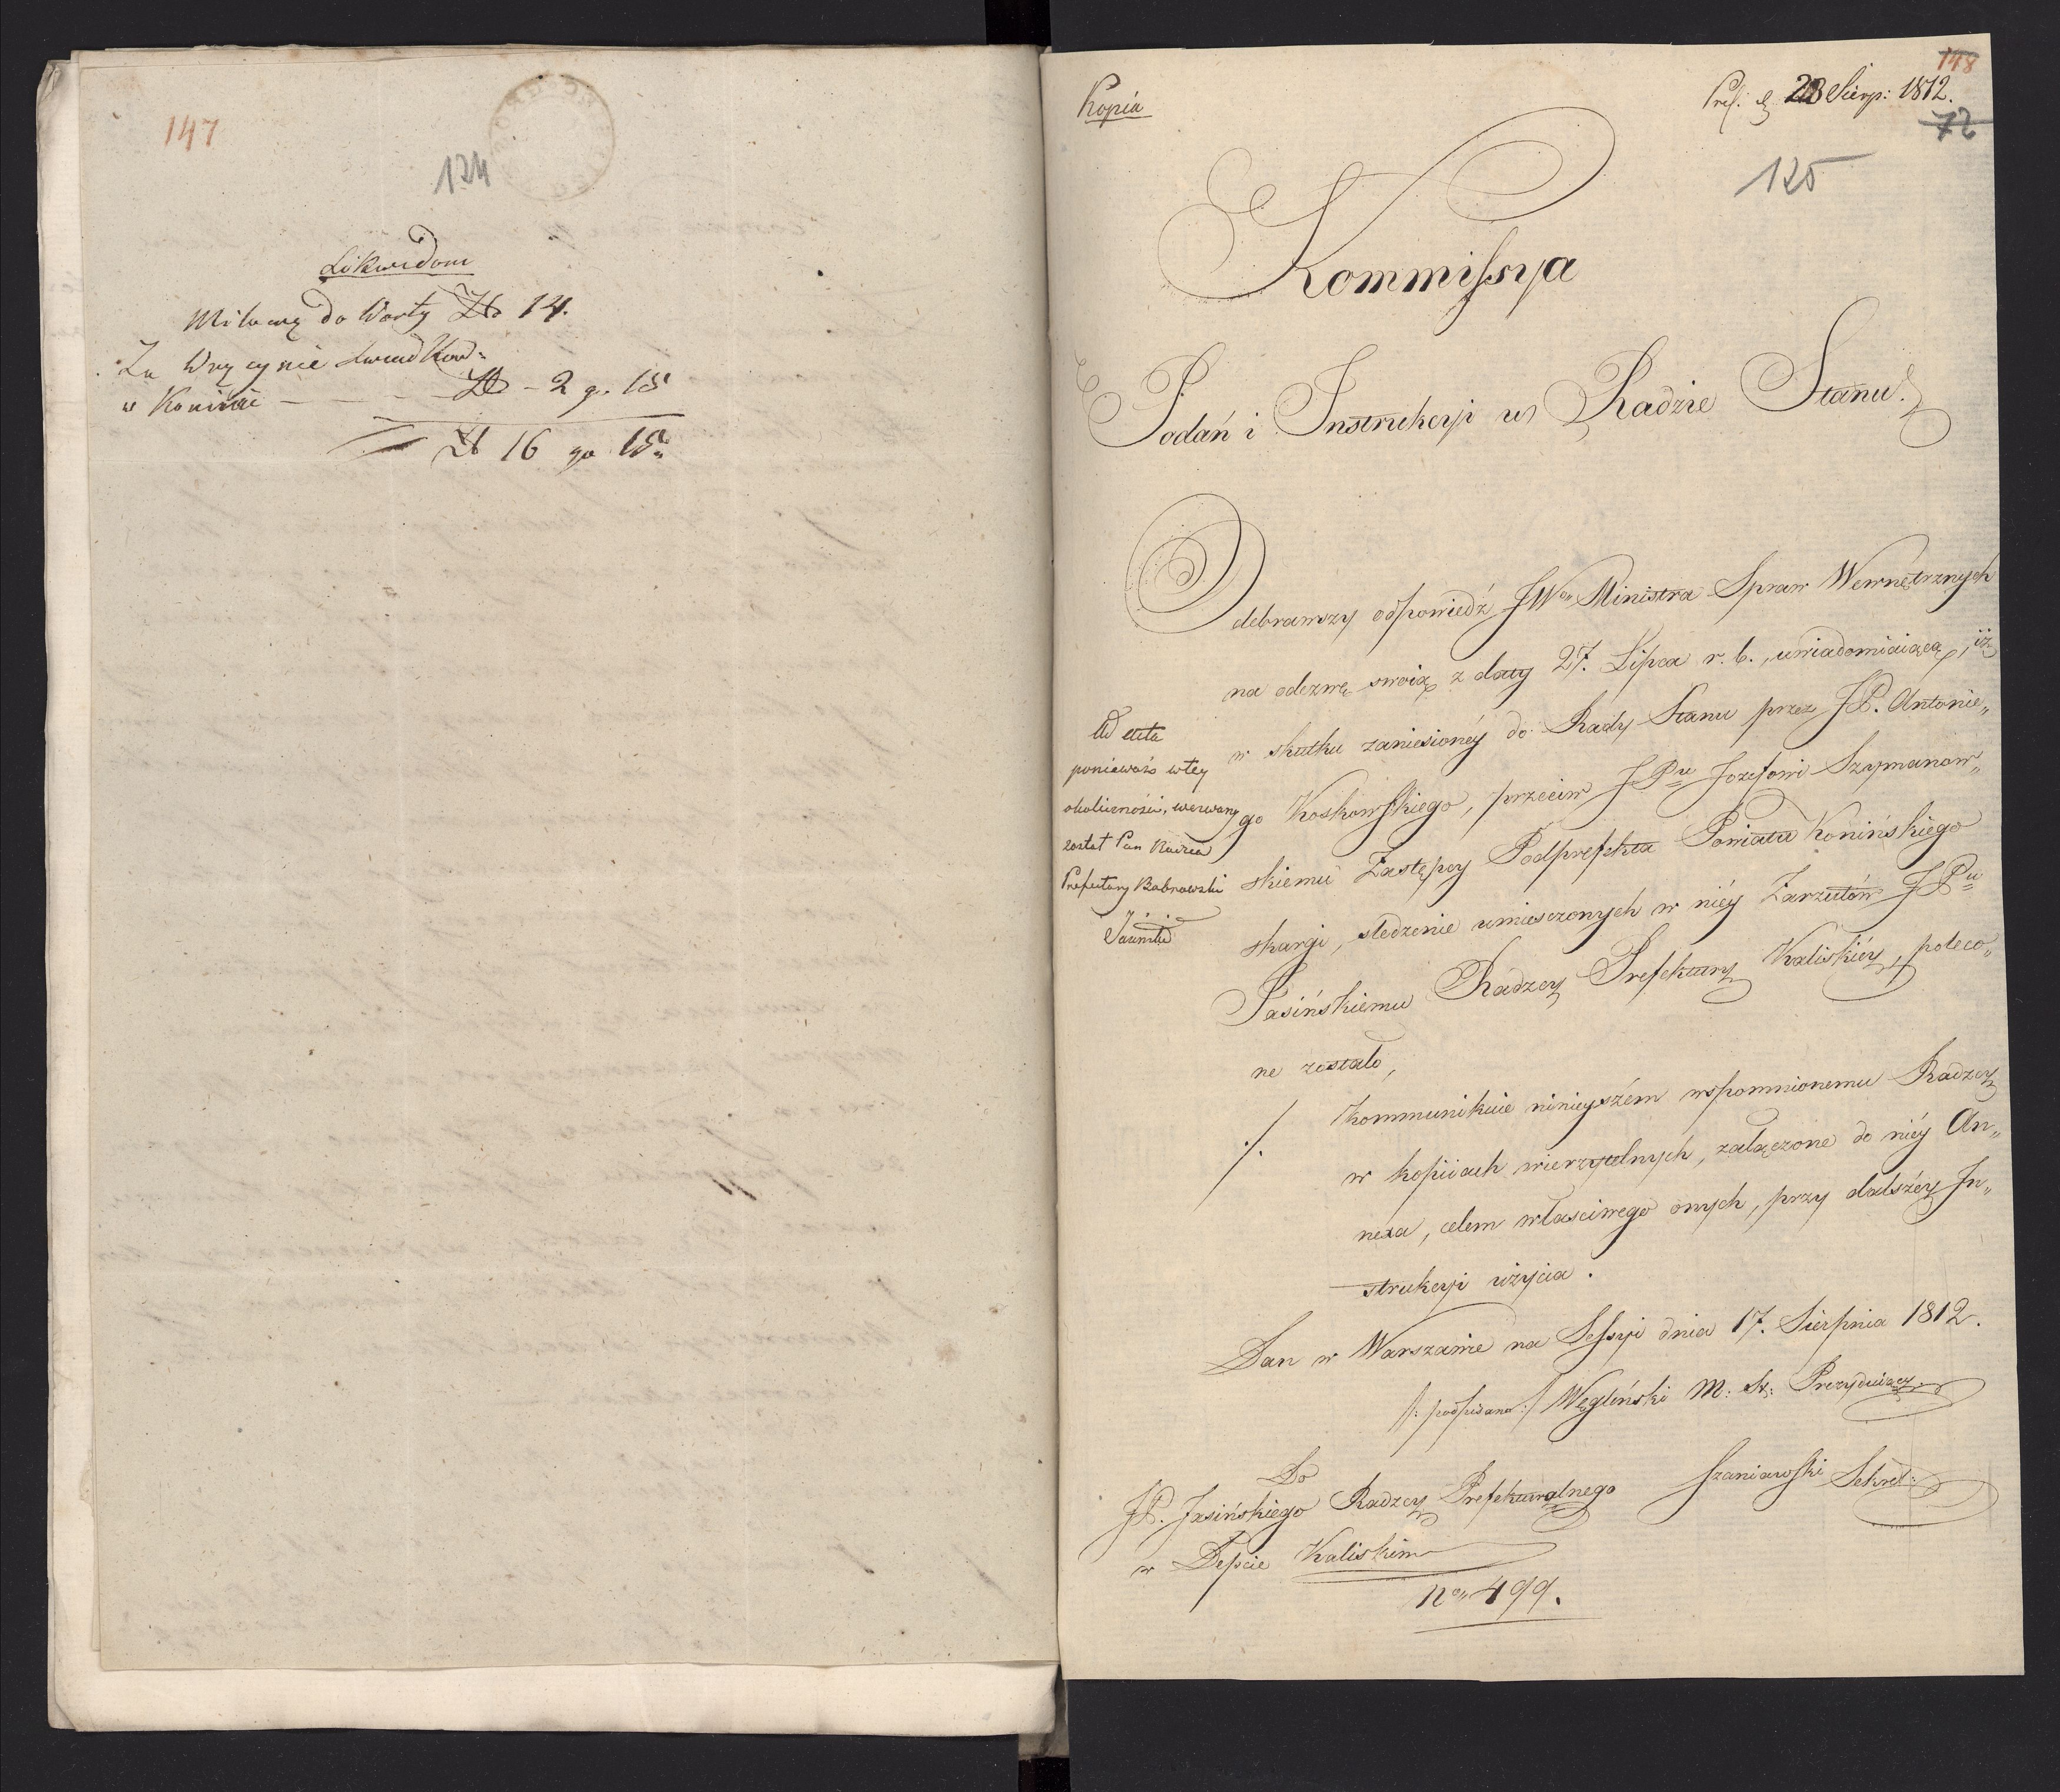 147
124
Likwidom
Milowę do Warty Zł 14.
Za Wezwanie Swiadkow:
w Koninie - - - - Zł - 2 g. 15
Zł 16 gr 15.
148
Kopia
Pres. d. 23 Sierp: 1812.
72
125
Kommissya
Podań i Instrukcyi w Radzie Stanu.
Odebrawszy odpowiedź JWo Ministra Spraw Wewnętrznych
na odezwę swoią z daty 27. Lipca r. b., uwiadomiaiącą, iż
w skutku zaniesionéy do Rady Stanu przez JP. Antonie„
go Koskowskiego, przeciw JPu Jozefowi Szymanow„
skiemu Zastępcy Podprefekta Powiatu Konińskiego
skargi, sledzenie umiesczonych w niéy Zarzutów JPu
Jasińskiemu Radzcy Prefektury Kaliskiéy, poleco„
ne zostało,
Ad acta
ponieważ w tey
okoliczności, wezwany
został Pan Radca
Prefektury Bobrowski
Jasiński
./. Kommunikuie ninieyszém wspomnionemu Radzcy
w kopiiach wierzytelnych, załączone do niéy An„
nexa, celem właściwego onych, przy dalszéy In„
strukcyi użycia.
Dan w Warszawie na Sessyi dnia 17. Sierpnia 1812.
/: podpisano :/ Węgleński M: St: Prezyduiący.
Szaniawski Sekret:
Do
JP. Jasińskiego Radzcy Prefekturalnego
w Depcie Kaliskim
No 499.